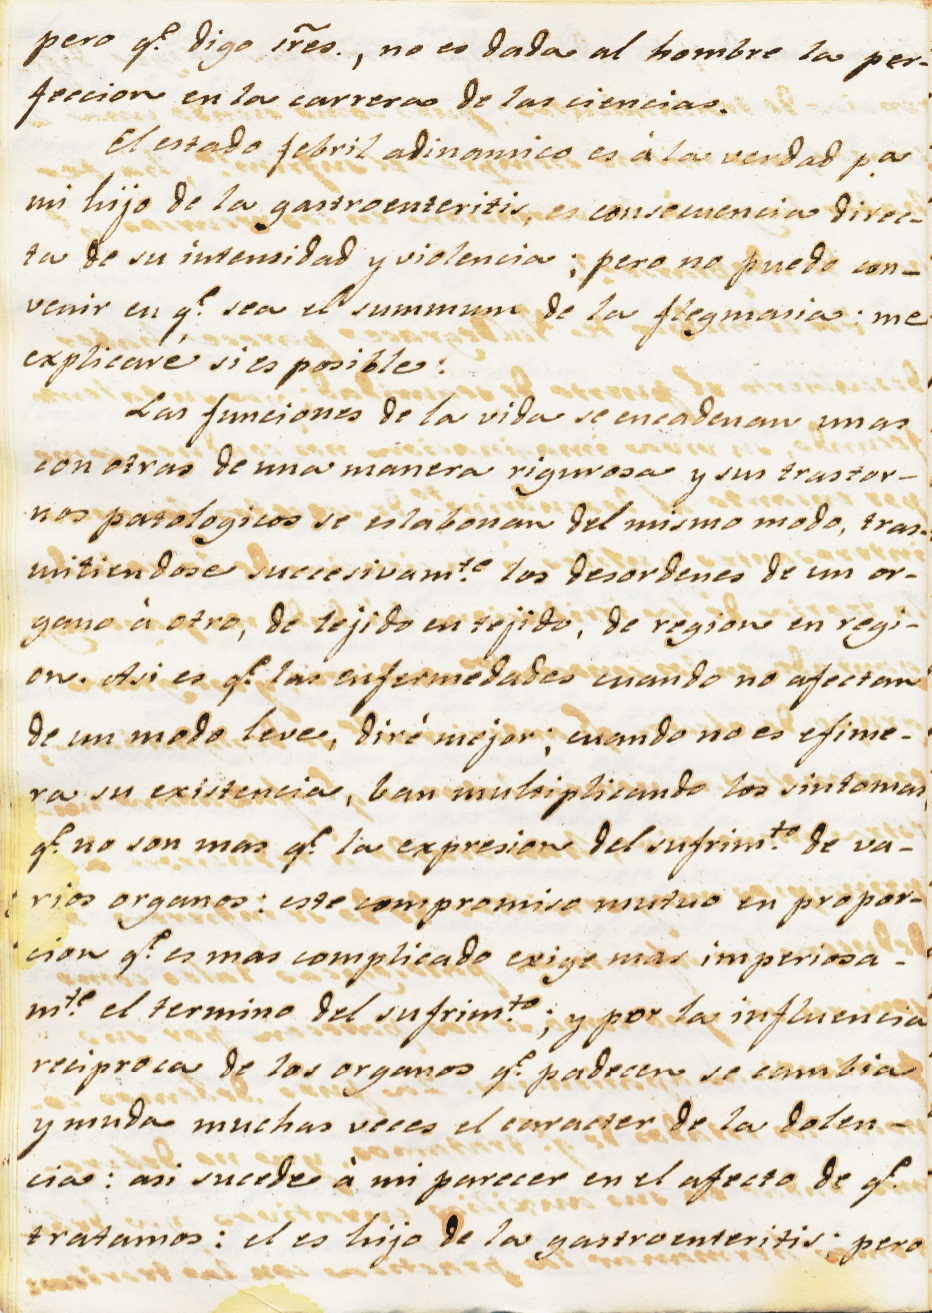 pero q.e digo srẽs., no es dada al hombre la per-
feccion en la carrera de las ciencias.
El estado febril adinamico es á la verdad p.a
mi hijo de la gastroenteritis, es consecuencia direc-
ta de su intensidad y violencia; pero no puedo con-
venir en q.e sea el summum de la flegmasia: me
explicaré si es posible:
Las funciones de la vida se encadenan unas
con otras de una manera rigurosa y sus trastor-
nos patologicos se eslabonan del mismo modo, tras-
mitiendose succesivam.te los desordenes de un or-
gano à otro, de tejido en tejido, de region en regi-
on. Asi es q.e las enfermedades cuando no afectan
de un modo leve, diré mejor; cuando no es efime-
ra su existencia, ban multiplicando los sintomas,
q.e no son mas q.e la expresion del sufrim.to de va-
rios organos: este compromiso mutuo en propor-
cion q.e es mas complicado exige mas imperiosa-
m.te el termino del sufrim.to; y por la influencia
reciproca de los organos q.e padecen se cambia
y muda muchas veces el caracter de la dolen-
cia: asi sucede à mi parecer en el afecto de q.e
tratamos: el es hijo de la gastroenteritis; pero